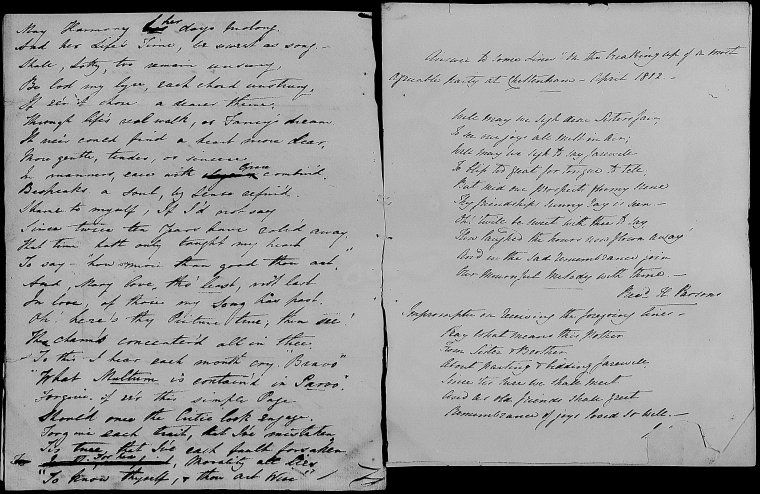 May Harmony her days prolong.
And her Life's Time, be sweet as song –
Shall, Sotty, too remain unsung,
Be lost my lyre, each chord unstrung,
If e'er it chose a dearer theme,
Through life's real walk, or Fancy's dream
It ne'er could find a heart more dear,
More gentle, tender, or sincere
In manners, ease with Grace combin'd.
Bespeaks a Soul, by Sense refin'd.
Shame to myself, If I'd not say
Since twice ten Years have roll'd away
That time hath only taught my heart
To say – "how more than good thou art."
And, Mary love, tho' least, not last
In love, of those my Song has past.
Oh! here's thy Picture true, then see!
The charms concenter'd all in thee
To this I hear each mouth cry "Bravo"
"What Multum is contain'd in Parvo".
Forgive, if e'er this simple Page
Should once the Critic look engage.
Forgive each trait, that I've mistaken
'Tis true that I've each fault forsaken
For Morality all dies
"To know thyself, & thou art Wise"
Answer to some Lines "On the breaking up of a most
agreeable party at Cheltenham – April 1812 –
Well may we sigh dear Sister fair,
For our joys all melt in Air;
Well may we sigh to say farewell
To
But mid our prospects gloomy scene
Thy friendship's sunny ray is seen –
Oh! 'twill be sweet with thee to say
How laughed the hours now flown away
And in the sad remembrance join
Our mournful melody with thine –
Fred. H. Parsons
Impromptu on receiving the foregoing lines –
Pray what means this pother
From Sister & Brother
About parting & bidding farewell.
Since I'm sure we shall meet
And as old friends shall greet
Remembrance of joys loved so well. –